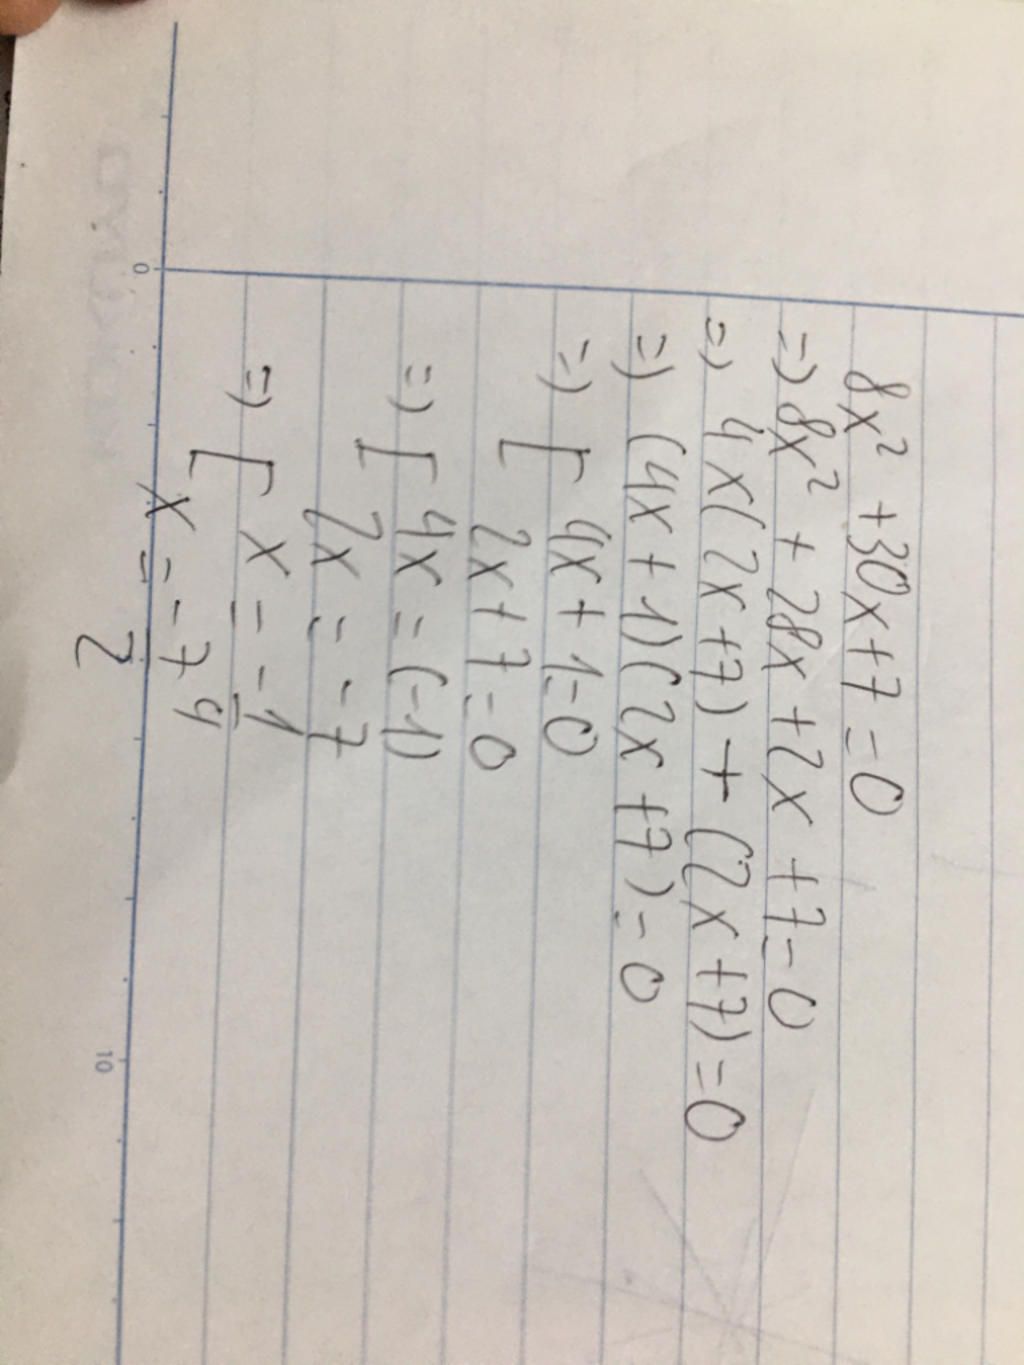 8x² + 30x + 7 = 0
=) 8x² + 28x + 2x + 7 = 0
=) 4x(2x + 7) + (2x + 7) = 0
=) (4x + 1)(2x + 7) = 0
=) [ 4x + 1 = 0
2x + 7 = 0
=) [ 4x = (-1)
2x = -7
=) [ x = -1/4
x = -7/2
0
10